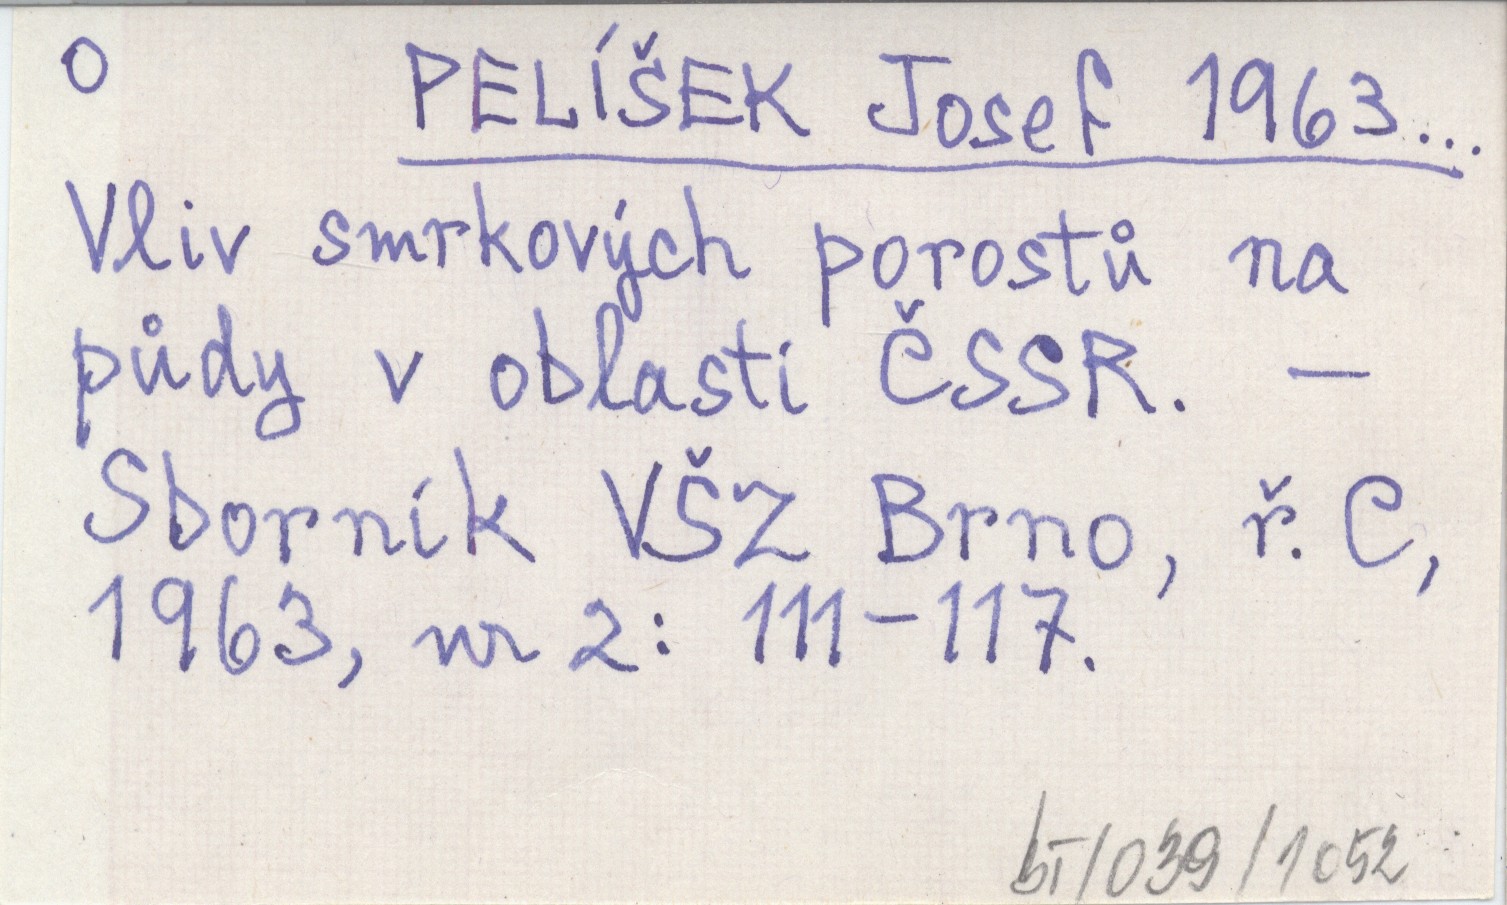 O PELÍŠEK Josef 1963...
Vliv smrkových porostů na
půdy v oblasti ČSSR. —
Sborník VŠZ Brno, ř. C,
1963, nr 2: 111-117.
bI/039/1052